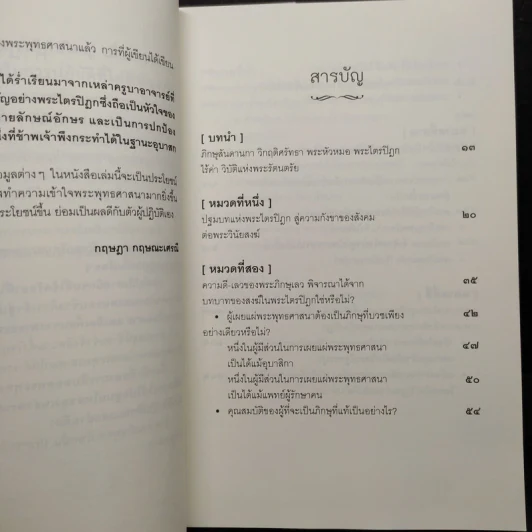 งพระพุทธศาสนาแล้ว การที่ผู้เขียนได้เขียน
ได้ร่ำเรียนมาจากเหล่าครูบาอาจารย์ที่
ัญอย่างพระไตรปิฎกซึ่งถือเป็นหัวใจของ
ายลักษณ์อักษร และเป็นการปกป้อง
่งที่ข้าพเจ้าพึงกระทำได้ในฐานะอุบาสก
อมูลต่างๆ ในหนังสือเล่มนี้จะเป็นประโยชน์
งทำความเข้าใจพระพุทธศาสนามากยิ่งขึ้น
ะโยชน์ขึ้น ย่อมเป็นผลดีกับตัวผู้ปฏิบัติเอง
กฤษฎา กฤษณะเศรณี
สารบัญ
[ บทนำ ]
ภิกษุสันดานกา วิกฤติศรัทธา พระหัวหมอ พระไตรปิฎก ๑๓
ไร้ค่า วิบัติแห่งพระรัตนตรัย
[ หมวดที่หนึ่ง ]
ปฐมบทแห่งพระไตรปิฎก สู่ความกังขาของสังคม ๒๐
ต่อพระวินัยสงฆ์
[ หมวดที่สอง ]
ความดี-เลวของพระภิกษุเลว พิจารณาได้จาก ๓๕
บทบาทของสงฆ์ในพระไตรปิฎกใช่หรือไม่?
• ผู้เผยแผ่พระพุทธศาสนาต้องเป็นภิกษุที่บวชเพียง ๔๒
อย่างเดียวหรือไม่?
หนึ่งในผู้มีส่วนในการเผยแผ่พระพุทธศาสนา ๔๗
เป็นได้แม้อุบาสิกา
หนึ่งในผู้มีส่วนในการเผยแผ่พระพุทธศาสนา ๕๐
เป็นได้แม้แพทย์ผู้รักษาคน
• คุณสมบัติของผู้ที่จะเป็นภิกษุที่แท้เป็นอย่างไร? ๕๔